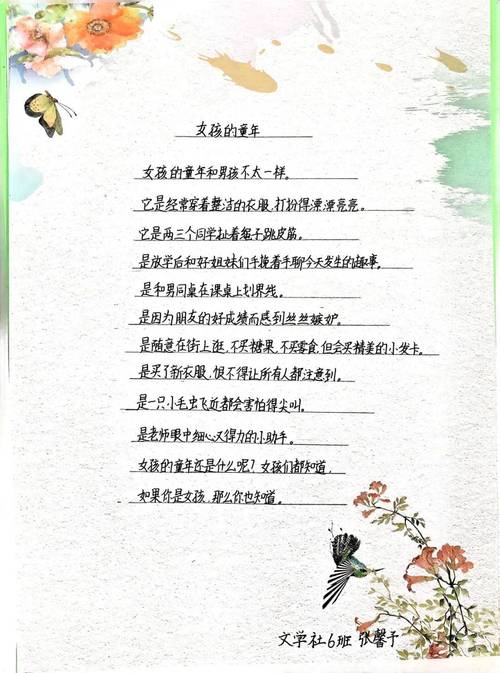 女孩的童年
女孩的童年和男孩不太一样。
它是经常穿着整洁的衣服,打扮得漂漂亮亮。
它是两三个同学扯着绳子跳皮筋。
是放学后和好姐妹们手挽着手聊今天发生的趣事。
是和男同桌在课桌上划界线。
是因为朋友的好成绩而感到丝丝嫉妒。
是随意在街上逛,不买糖果,不买零食,但会买精美的小发卡。
是买了新衣服,恨不得让所有人都注意到。
是一只小毛虫飞近都会害怕得尖叫。
是老师眼中细心又得力的小助手。
女孩的童年还是什么呢?女孩们都知道,
如果你是女孩,那么你也知道。
文学社6班 张馨予